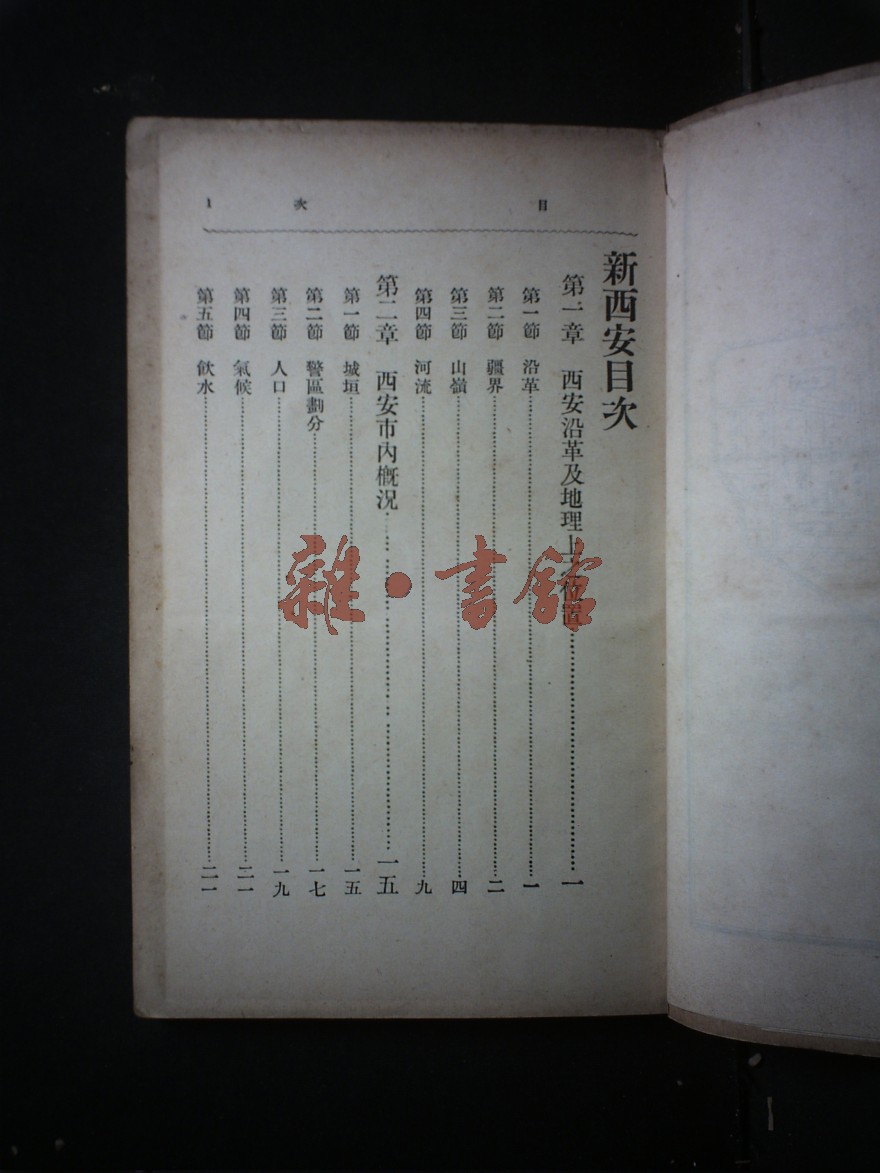 目 次 1
新西安目次
第一章 西安沿革及地理上之位置……一
第一節 沿革……一
第二節 疆界……二
第三節 山嶺……四
第四節 河流……九
第二章 西安市內概況……一五
第一節 城垣……一五
第二節 警區劃分……一七
第三節 人口……一九
第四節 氣候……二一
第五節 飲水……二一
雜·書館